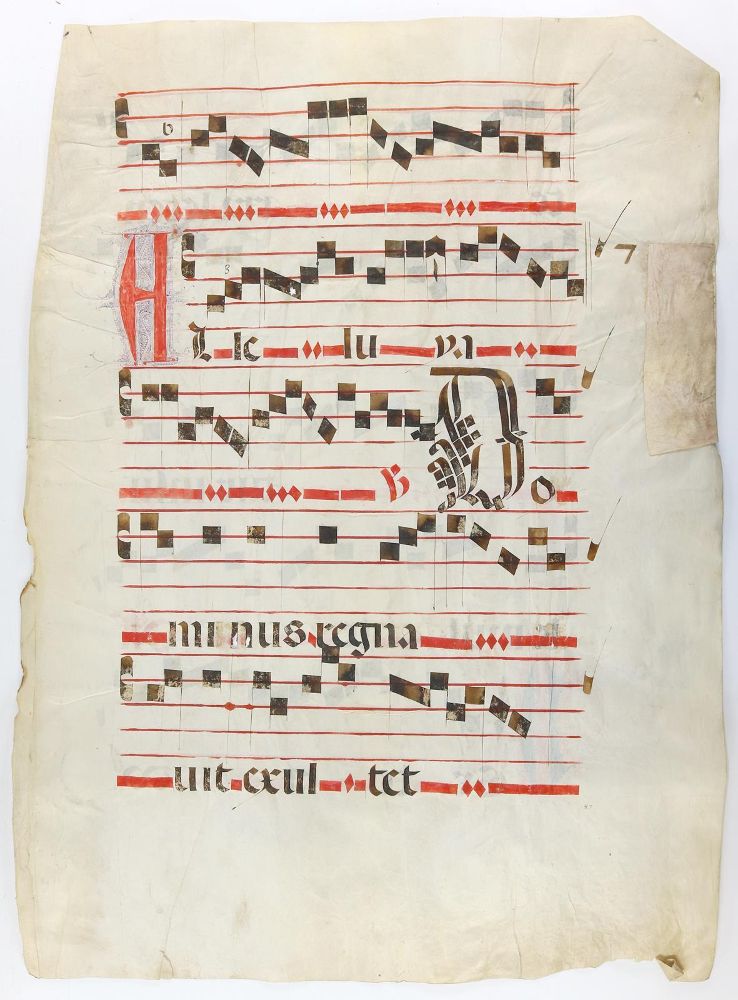 ALle lu ya
℟ Do
minus regna
uit exul tet